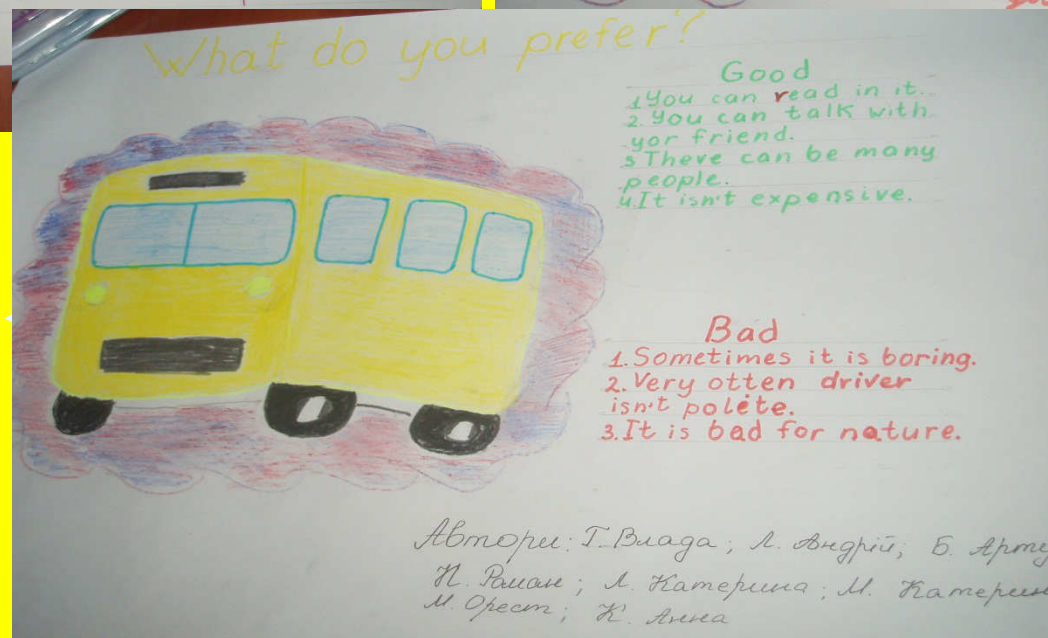 What do you prefer?
Good
1.You can read in it.
2.You can talk with
yor friend.
3 There can be many
people.
4.It isn't expensive.
Bad
1.Sometimes it is boring.
2.Very otten driver
isn't polite.
3.It is bad for nature.
Автори: Г. Влада; Л. Андрій; Б.
Н. Роман; Л. Катерина; М.
М. Орест; К. Анна